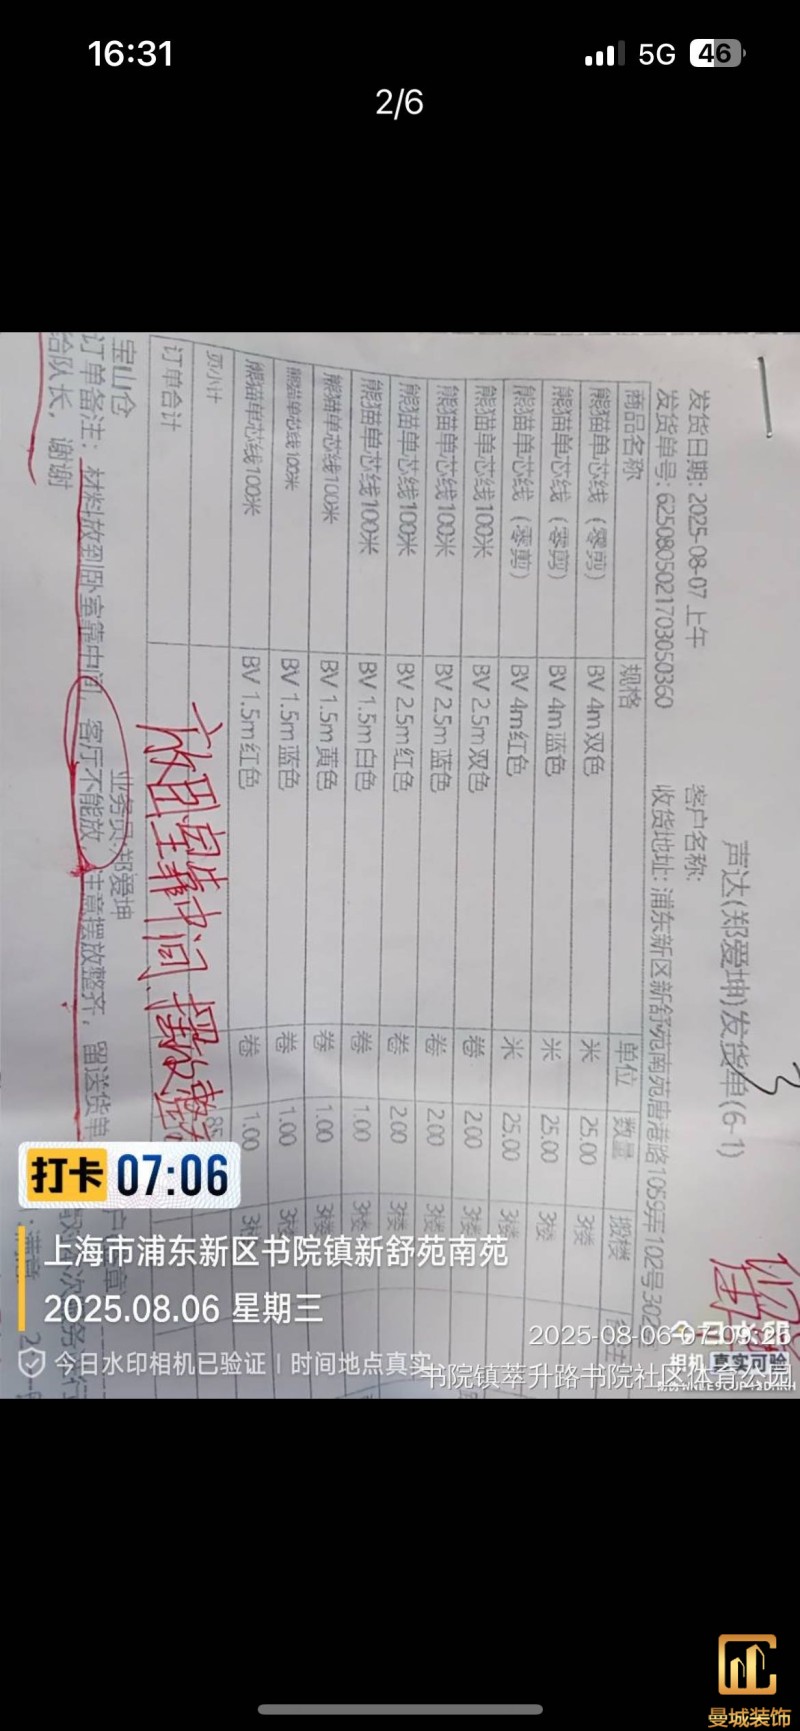 16:31
5G
46
2/6
声达(郑爱坤)发货单(6-1)
客户名称:
发货日期: 2025-08-07 上午
发货单号: 6250805021703050360
收货地址: 浦东新区新舒苑南苑唐港路1059弄102号302
商品名称 规格 单位 数量 搬楼
熊猫单芯线(零剪) BV 4m双色 米 25.00 3楼
熊猫单芯线(零剪) BV 4m蓝色 米 25.00 3楼
熊猫单芯线(零剪) BV 4m红色 米 25.00 3楼
熊猫单芯线100米 BV 2.5m双色 卷 2.00 3楼
熊猫单芯线100米 BV 2.5m蓝色 卷 2.00 3楼
熊猫单芯线100米 BV 2.5m红色 卷 2.00 3楼
熊猫单芯线100米 BV 1.5m白色 卷 1.00 3楼
熊猫单芯线100米 BV 1.5m黄色 卷 1.00 3楼
熊猫单芯线100米 BV 1.5m蓝色 卷 1.00 3楼
熊猫单芯线100米 BV 1.5m红色 卷 1.00 3楼
页小计
订单合计
放卧室靠中间 摆放整齐
宝山仓 业务员:郑爱坤
订单备注: 材料放到卧室靠中间, 客厅不能放, 注意摆放整齐, 留送货单
给队长, 谢谢
打卡 07:06
上海市浦东新区书院镇新舒苑南苑
2025.08.06 星期三
今日水印相机已验证 | 时间地点真实
2025-08-06 07:09:26
书院镇萃升路书院社区体育公园
今日水印
相机 真实可验
曼城装饰